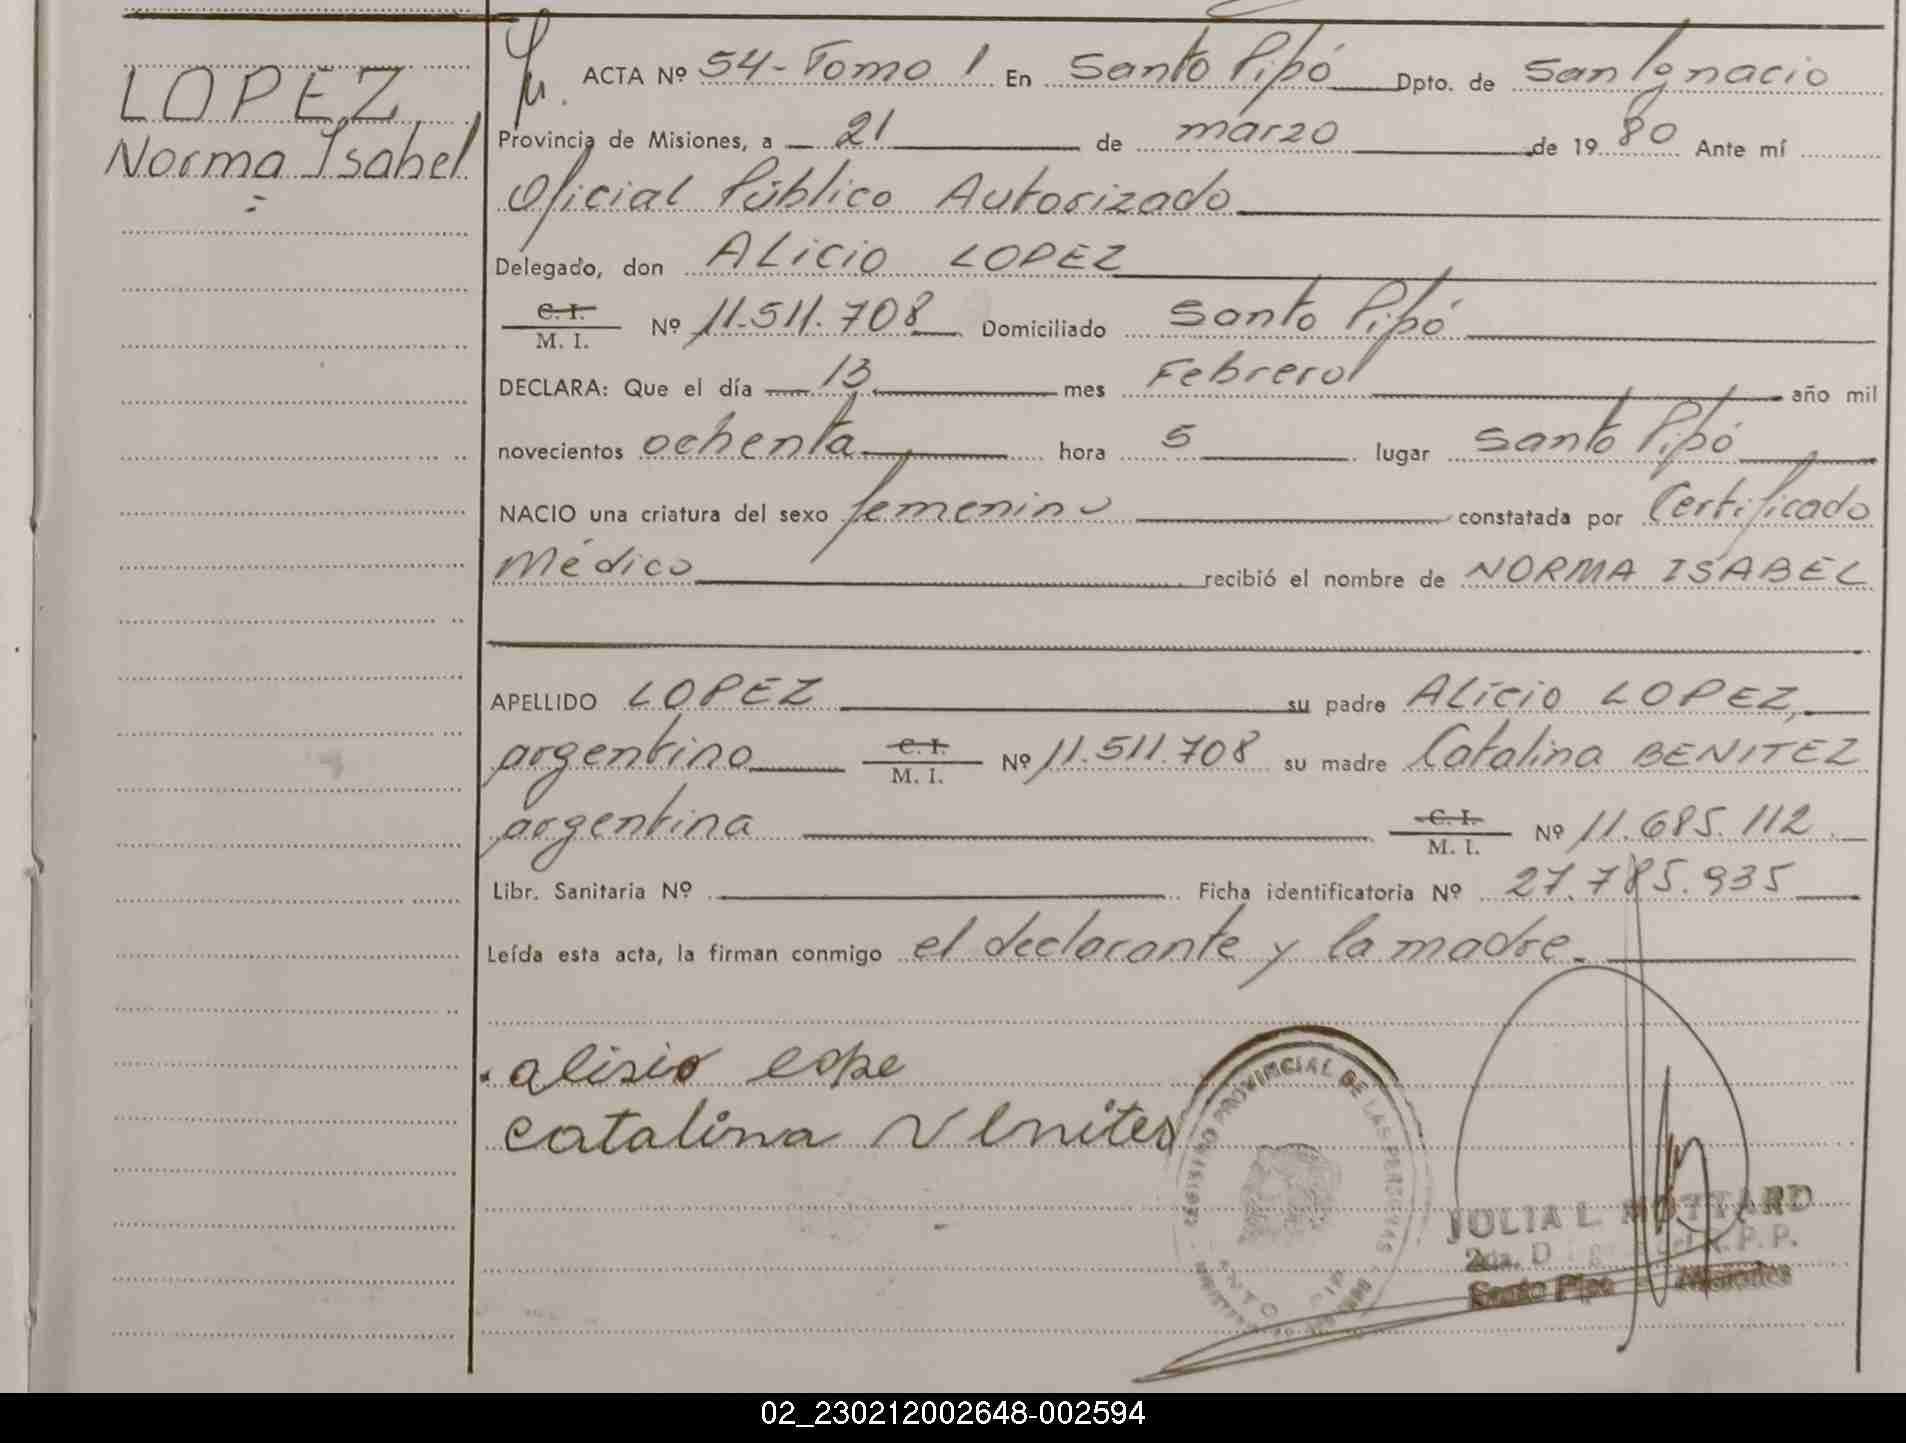 LOPEZ
Norma Isabel
ACTA Nº 54-Tomo 1 En Santo Pipó Dpto. de San Ignacio
Provincia de Misiones, a 21 de marzo de 1980 Ante mí
Oficial Público Autorizado
Delegado, don ALICIO LOPEZ
C. I.
M. I. Nº 11.511.708 Domiciliado Santo Pipó
DECLARA: Que el día 13 mes Febrero año mil
novecientos ochenta hora 5 lugar Santo Pipó
NACIO una criatura del sexo femenino constatada por Certificado
Médico recibió el nombre de NORMA ISABEL
APELLIDO LOPEZ su padre Alicio LOPEZ,
argentino C. I. M. I. Nº 11.511.708 su madre Catalina BENITEZ
argentina C. I. M. I. Nº 11.685.112
Libr. Sanitaria Nº Ficha identificatoria Nº 27.785.935
Leída esta acta, la firman conmigo el declarante y la madre.
alisio lope
catalina venites
REGISTRO PROVINCIAL DE LAS PERSONAS
JULIA L. MOTTARD
2da. D R. P. P.
Santo Pipo - Misiones
02_230212002648-002594